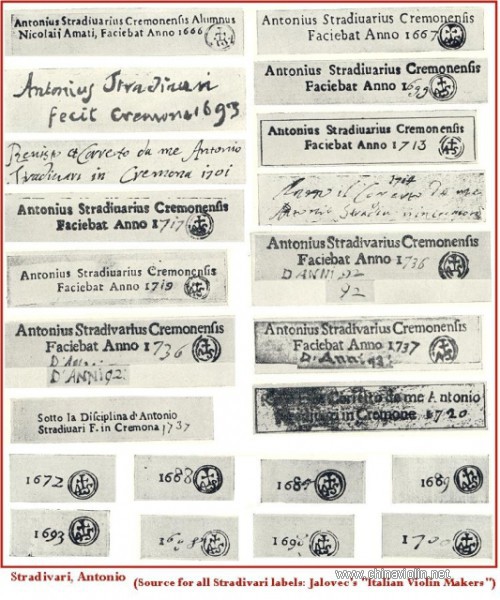 Antonius Stradiuarius Cremonensis Alumnus
Nicolaii Amati, Faciebat Anno 1666
Antonius Stradiuarius Cremonensis
Faciebat Anno 1667
Antonius Stradivari
fecit Cremona 1693
Antonius Stradiuarius Cremonensis
Faciebat Anno 1699
Revisto et Correto da me Antonio
Stradivari in Cremona 1701
Antonius Stradiuarius Cremonensis
Faciebat Anno 1713
Antonius Stradiuarius Cremonensis
Faciebat Anno 1717
1714
da me
Antonio
in cremona
Antonius Stradiuarius Cremonensis
Faciebat Anno 1719
Antonius Stradivarius Cremonensis
Faciebat Anno 1736
D'ANNI 92
92
Antonius Stradivarius Cremonensis
Faciebat Anno 1736
D'ANNI 92.
Antonius Stradivarius Cremonensis
Faciebat Anno 1737
D'Anni 93.
Sotto la Disciplina d'Antonio
Stradiuari F. in Cremona 1737
Corretto da me Antonio
Stradiuari in Cremone 1720
1672
1683
1685
1689
1693
1700
Stradivari, Antonio
(Source for all Stradivari labels: Jalovec's "Italian Violin Makers")
www.chinaviolin.net